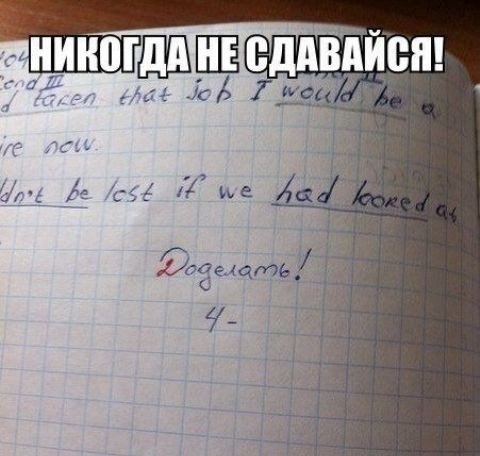 НИКОГДА НЕ СДАВАЙСЯ!
cond III
taken that job I would be a
now.
be lost if we had looked at
Доделать!
4-